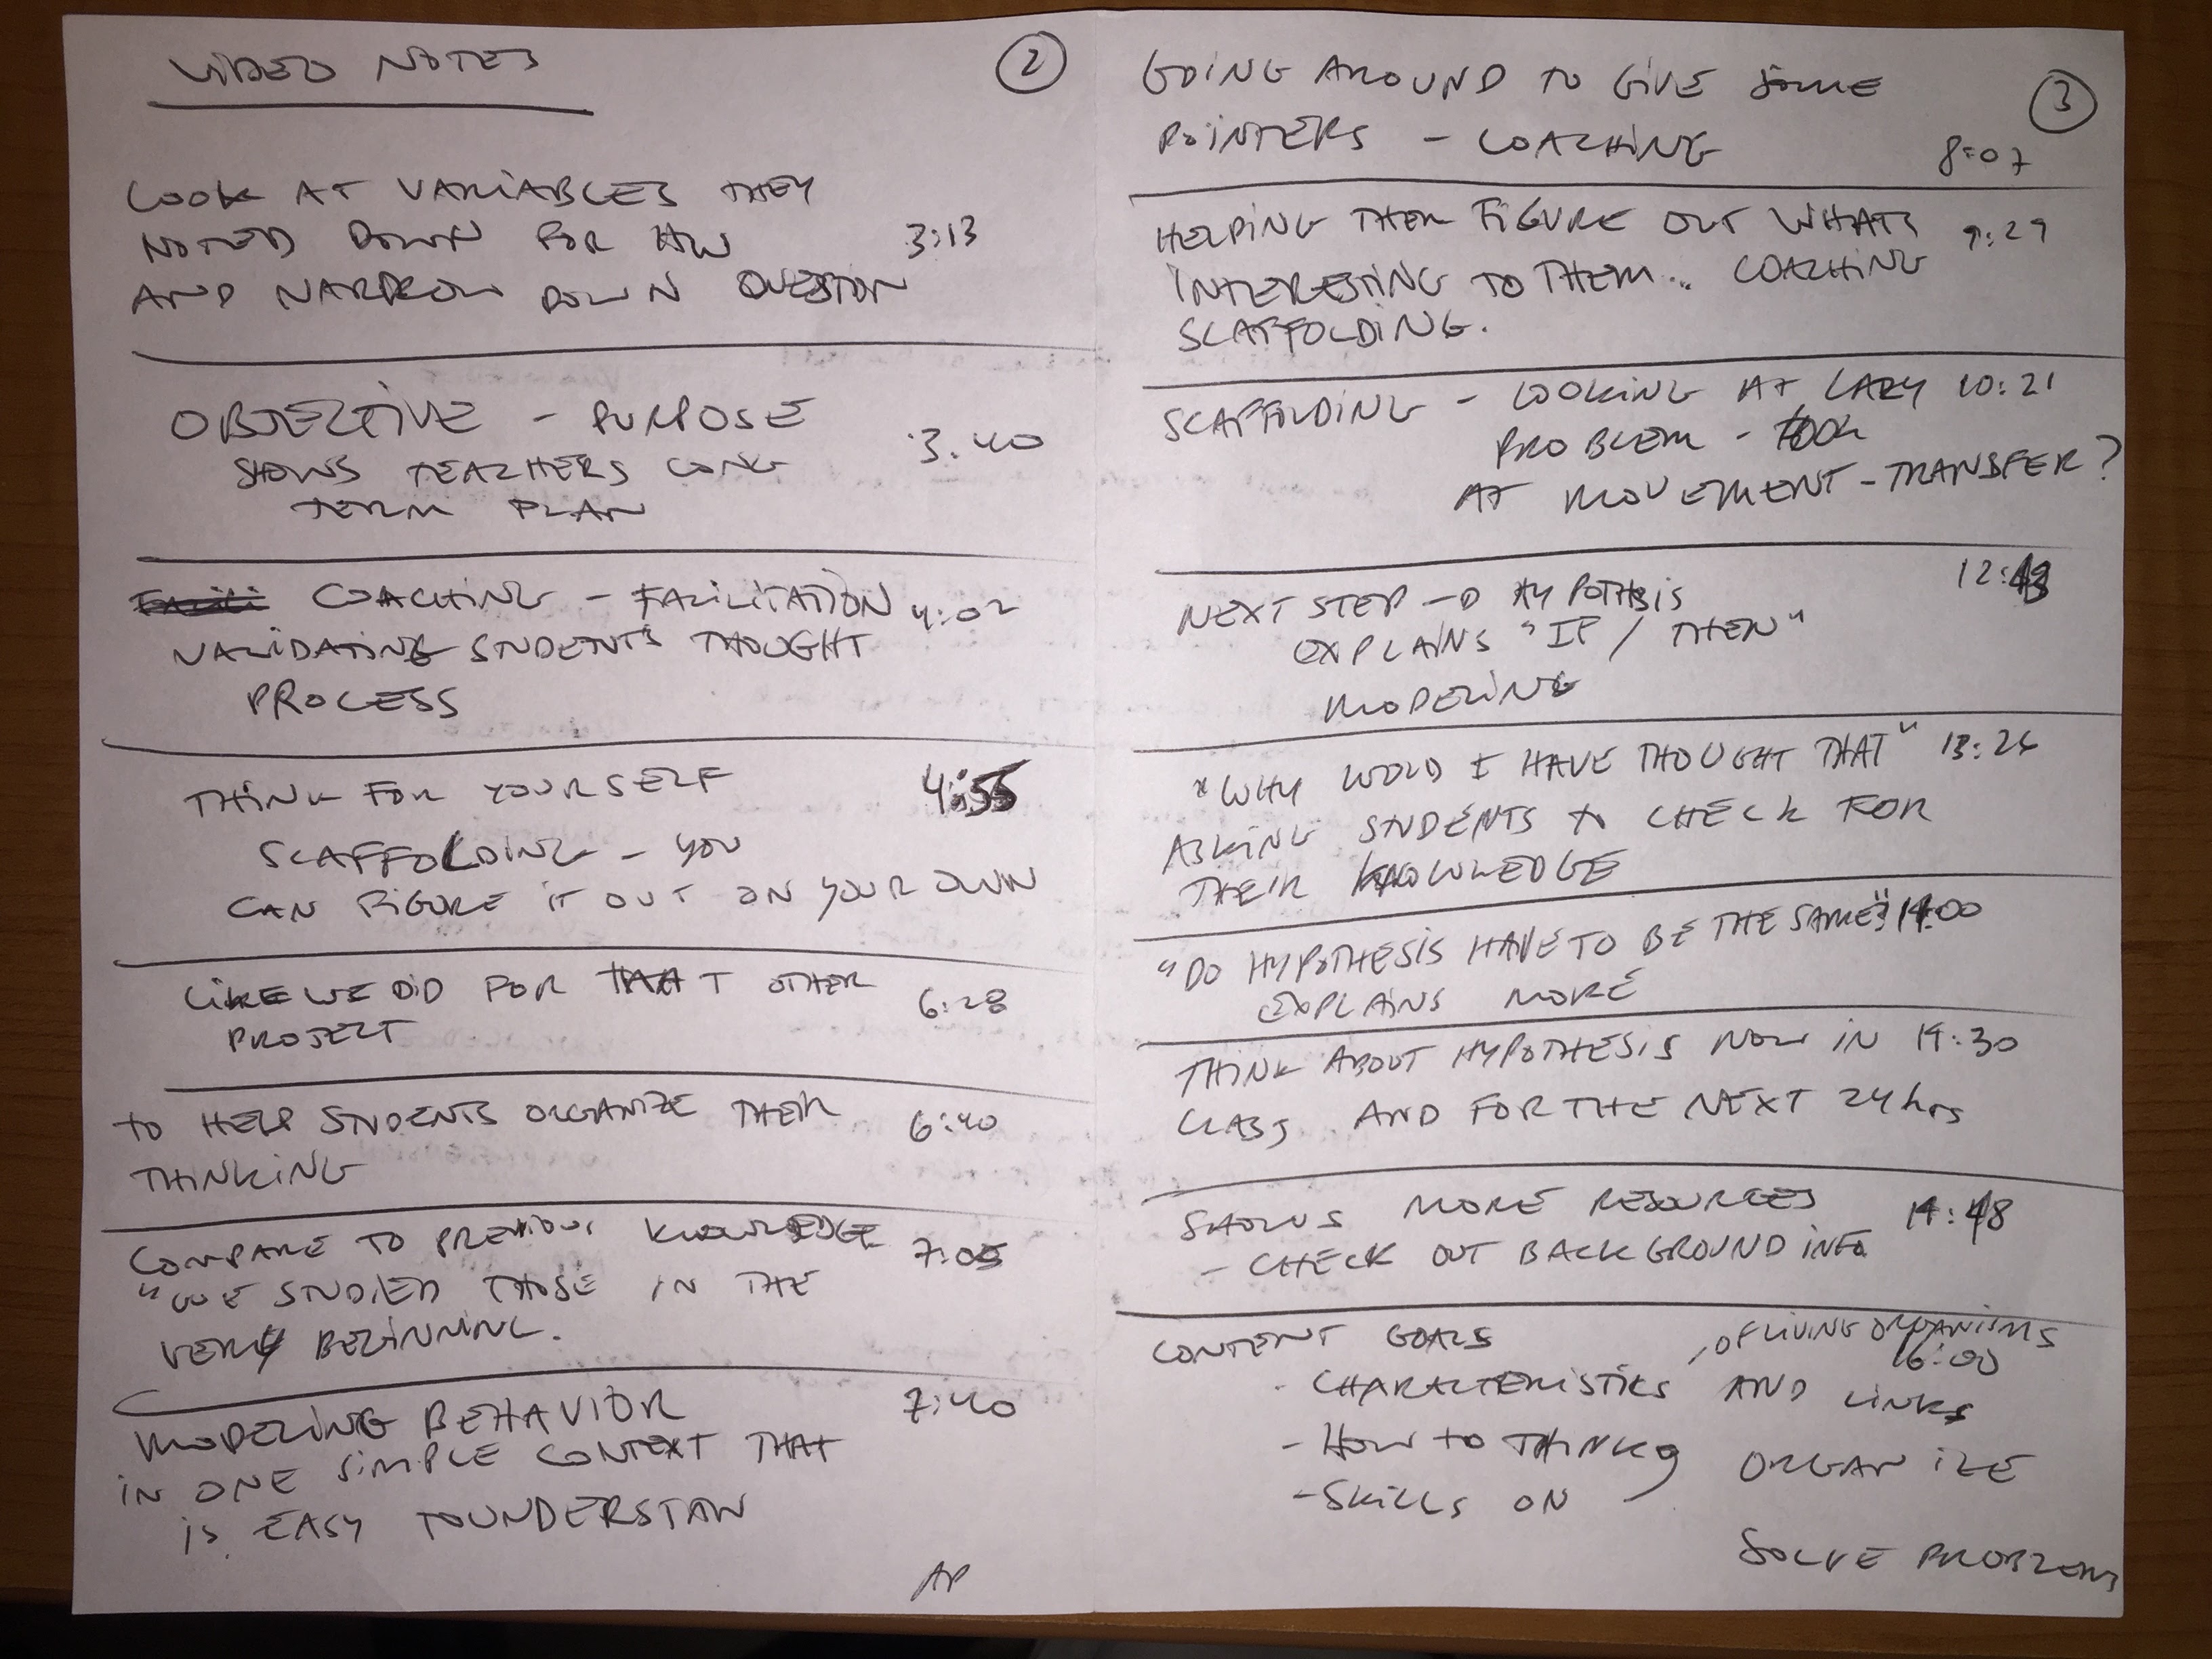 VIDEO NOTES
2
LOOK AT VARIABLES THEY
NOTED DOWN FOR HW 3:13
AND NARROW DOWN QUESTION
OBJECTIVE - PURPOSE
SHOWS TEACHERS LONG 3:40
TERM PLAN
COACHING - FACILITATION 4:02
VALIDATING STUDENT'S THOUGHT
PROCESS
THINK FOR YOURSELF 4:55
SCAFFOLDING - YOU
CAN FIGURE IT OUT ON YOUR OWN
LIKE WE DID FOR THAT OTHER 6:28
PROJECT
TO HELP STUDENTS ORGANIZE THEIR 6:40
THINKING
COMPARE TO PREVIOUS KNOWLEDGE 7:05
"WE STUDIED THOSE IN THE
VERY BEGINNING.
MODELING BEHAVIOR 7:40
IN ONE SIMPLE CONTEXT THAT
IS EASY TO UNDERSTAN
AP
3
GOING AROUND TO GIVE SOME
POINTERS - COACHING 8:07
HELPING THEM FIGURE OUT WHATS 9:29
INTERESTING TO THEM.. COACHING
SCAFFOLDING.
SCAFFOLDING - LOOKING AT LADY 10:21
PROBLEM - LOOK
AT MOVEMENT - TRANSFER?
12:43
NEXT STEP → HYPOTHESIS
EXPLAINS "IF / THEN"
MODELING
"WHY WOULD I HAVE THOUGHT THAT" 13:26
ASKING STUDENTS TO CHECK FOR
THEIR KNOWLEDGE
"DO HYPOTHESIS HAVE TO BE THE SAME?" 14:00
EXPLAINS MORE
THINK ABOUT HYPOTHESIS NOW IN 14:30
CLASS AND FOR THE NEXT 24 hrs
SHOWS MORE RESOURCES 14:48
- CHECK OUT BACKGROUND INFO
CONTENT GOALS OF LIVING ORGANISMS
16:00
- CHARACTERISTICS AND LINKS
- HOW TO THINK ORGANIZE
- SKILLS ON
SOLVE PROBLEMS